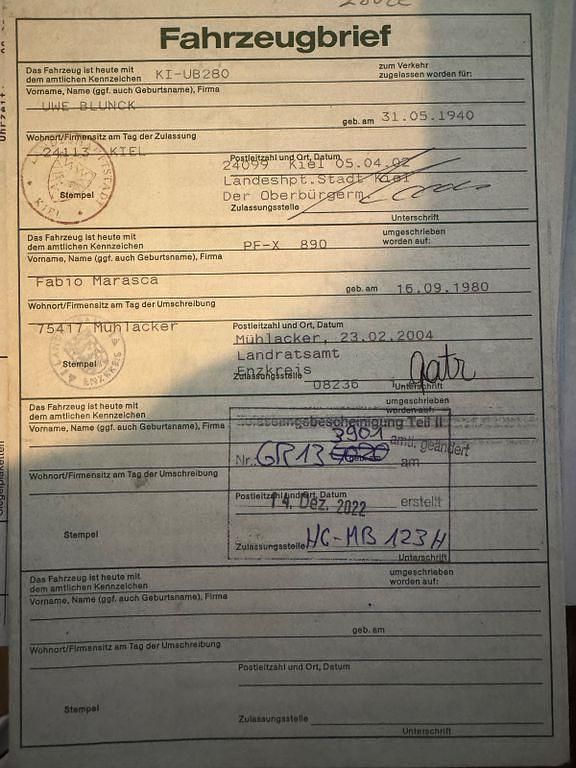 Fahrzeugbrief
Das Fahrzeug ist heute mit
dem amtlichen Kennzeichen KI-UB280
zum Verkehr
zugelassen worden für:
Vorname, Name (ggf. auch Geburtsname), Firma
UWE BLUNCK
geb. am 31.05.1940
Wohnort/Firmensitz am Tag der Zulassung
24113 KIEL
Postleitzahl und Ort, Datum
24099 Kiel 05.04.02
Landeshpt.Stadt Kiel
Der Oberbürgerm.
Stempel
KIEL
Zulassungsstelle
Unterschrift
Das Fahrzeug ist heute mit
dem amtlichen Kennzeichen PF-X 890
umgeschrieben
worden auf:
Vorname, Name (ggf. auch Geburtsname), Firma
Fabio Marasca
geb. am 16.09.1980
Wohnort/Firmensitz am Tag der Umschreibung
75417 Mühlacker
Postleitzahl und Ort, Datum
Mühlacker, 23.02.2004
Landratsamt
Enzkreis
Stempel
ENZKREIS
Zulassungsstelle 08236 Unterschrift
Das Fahrzeug ist heute mit
dem amtlichen Kennzeichen
umgeschrieben
worden auf:
Vorname, Name (ggf. auch Geburtsname), Firma
Zulassungsbescheinigung Teil II
3901 amtl. geändert
Nr. GR13 am
Wohnort/Firmensitz am Tag der Umschreibung
Postleitzahl und Ort, Datum
14. Dez. 2022 erstellt
Stempel
Zulassungsstelle HG-MB 123H
Unterschrift
Das Fahrzeug ist heute mit
dem amtlichen Kennzeichen
umgeschrieben
worden auf:
Vorname, Name (ggf. auch Geburtsname), Firma
geb. am
Wohnort/Firmensitz am Tag der Umschreibung
Postleitzahl und Ort, Datum
Stempel
Zulassungsstelle
Unterschrift